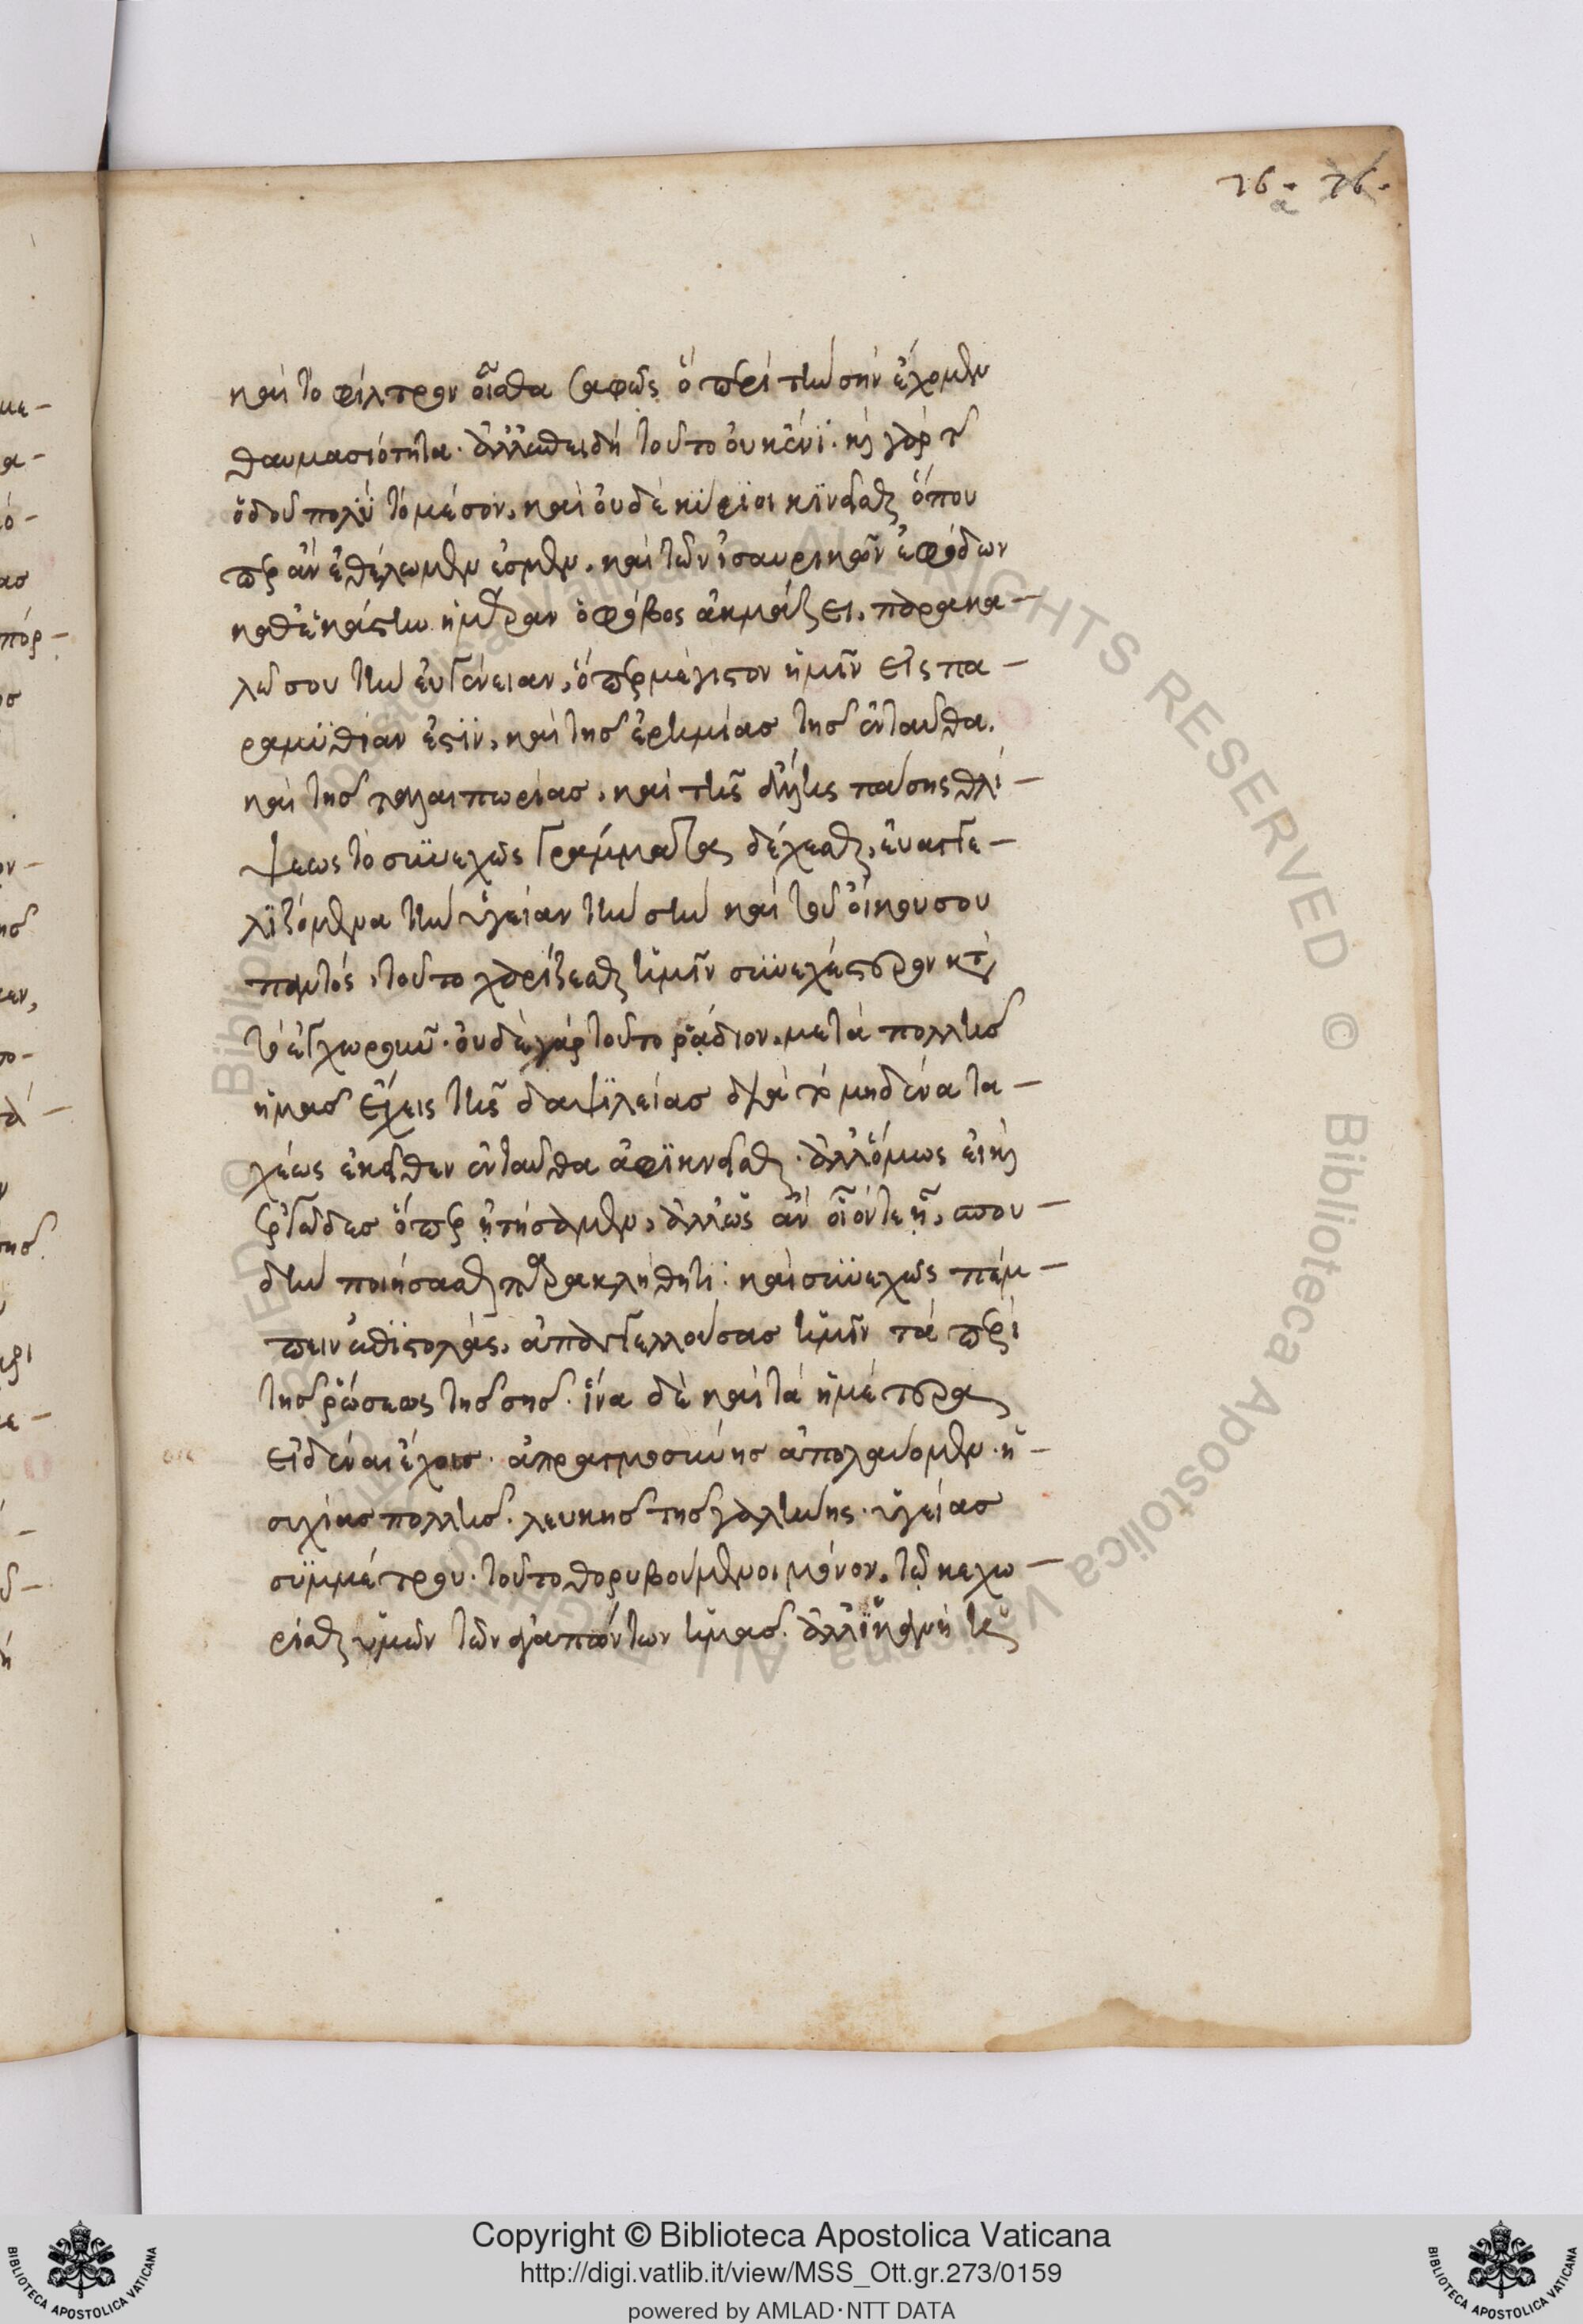 76. 76.
a
καὶ τὸ φίλτρον οἶσθα σαφῶς ὃ περὶ τὴν σὴν ἔχομεν
θαυμασιότητα. ἀλλ' ἐπειδὴ τοῦτο οὐκ ἔνι. καὶ γὰρ τῆς
ὁδοῦ πολὺ τὸ μέσον, καὶ οὐδὲ κύριοι κινεῖσθαι ὅπου
περ ἂν ἐθέλωμεν ἐσμεν. καὶ τῶν ἰσαυρικῶν ἐφόδων
καθ' ἑκάστην ἡμέραν ὁ φόβος ἀκμάζει. παρακα-
λῶ σου τὴν εὐγένειαν, ὅπερ μέγιστον ἡμῖν εἰς πα-
ραμυθίαν ἐστὶν, καὶ τῆς ἐρημίας τῆς ἐνταῦθα.
καὶ τῆς ταλαιπωρίας. καὶ τῆς ἄλλης πάσης θλί-
ψεως τὸ συνεχῶς γράμματα δέχεσθαι, εὐαγγε-
λιζόμενα τὴν ὑγείαν τὴν σὴν καὶ τοῦ οἴκου σου
παντός, τοῦτο χαρίζεσθαι ἡμῖν συνεχέστερον κατὰ
τὸ ἐγχωροῦν. οὐδὲ γὰρ τοῦτο ῥᾴδιον. μετὰ πολλῆς
ἡμᾶς ἔχεις τῆς δαψιλείας διὰ τὸ μηδένα τα-
χέως ἐκεῖθεν ἐνταῦθα ἀφικνεῖσθαι. ἀλλ' ὅμως εἰ καὶ
ἐργῶδες ὅπερ ᾐτήσαμεν, ἀλλ' ὡς ἂν οἷόν τε ᾖ, σπου-
δὴν ποιήσασθαι παρακλήθητι. καὶ συνεχῶς πέμ-
πειν ἐπιστολὰς, ἀπαγγελλούσας ἡμῖν τὰ περὶ
τῆς ῥώσεως τῆς σῆς. ἵνα δὲ καὶ τὰ ἡμέτερα
εἰδέναι ἔχοις. ἀπραγμοσύνης ἀπολαύομεν. ἡ-
συχίας πολλῆς. λευκῆς τῆς γαλήνης. ὑγείας
συμμέτρου. τοῦτο θορυβούμενοι μόνον, τῷ κεχω-
ρίσθαι ὑμῶν τῶν ἀγαπώντων ἡμᾶς. ἀλλ'
Copyright © Biblioteca Apostolica Vaticana
http://digi.vatlib.it/view/MSS_Ott.gr.273/0159
powered by AMLAD·NTT DATA
BIBLIOTECA APOSTOLICA VATICANA
BIBLIOTECA APOSTOLICA VATICANA